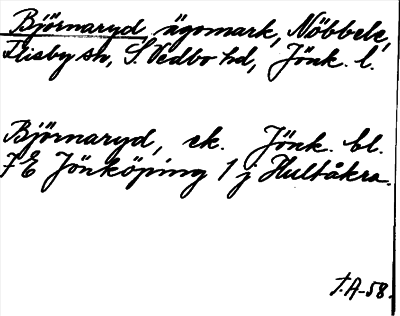 Björnaryd ägomark, Nöbbele,
Flisby sn, S. Vedbo hd, Jönk. l.
Björnaryd, ek. Jönk. bl.
7E Jönköping 1 j Hultåkra.
T.A-58.